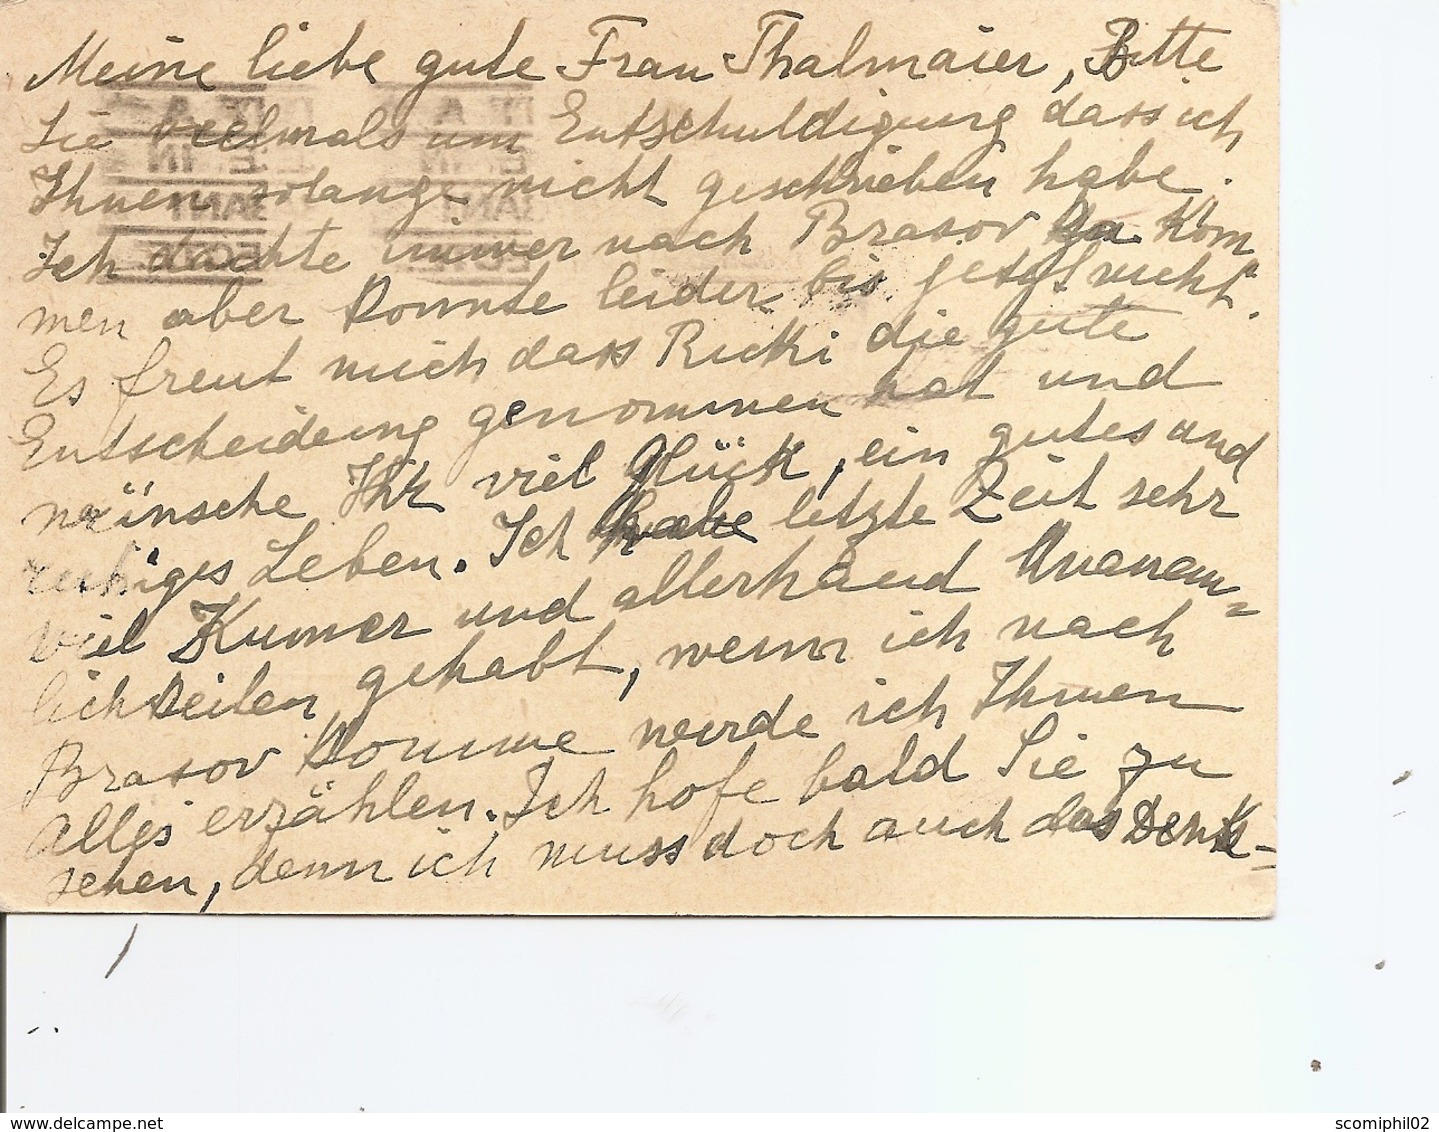 Meine liebe gute Frau Thalmaier, Bitte
Sie vielmals um Entschuldigung dass ich
Ihnen solange nicht geschrieben habe.
Ich dachte immer nach Brasov zu kom
men aber konnte leider bis jetzt nicht.
Es freut mich dass Ricki die gute
Entscheidung genommen hat und
wünsche Ihr viel Glück, ein gutes und
ruhiges Leben. Ich habe letzte Zeit sehr
viel Kumer und allerhand Unanem=
lichkeiten gehabt, wenn ich nach
Brasov komme werde ich Ihnen
Alles erzählen. Ich hofe bald Sie zu
sehen, denn ich muss doch auch das Denk-
www.delcampe.net
scomiphil02